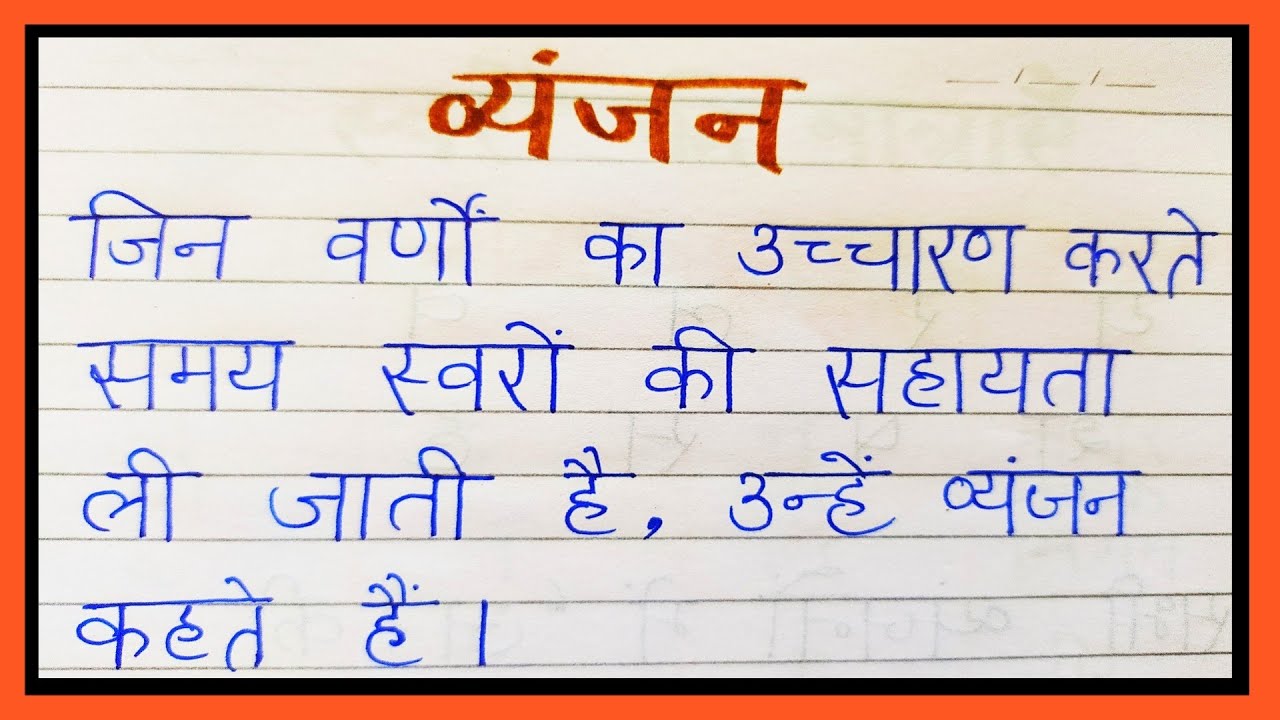 व्यंजन
जिन वर्णों का उच्चारण करते
समय स्वरों की सहायता
ली जाती है, उन्हें व्यंजन
कहते हैं।